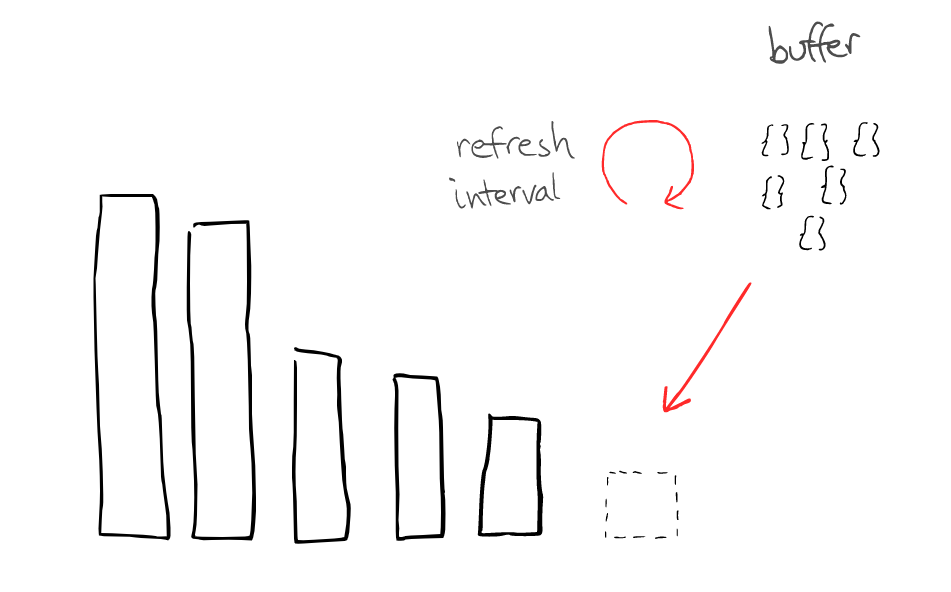 buffer
refresh
interval
{} {} {}
{} {}
{}